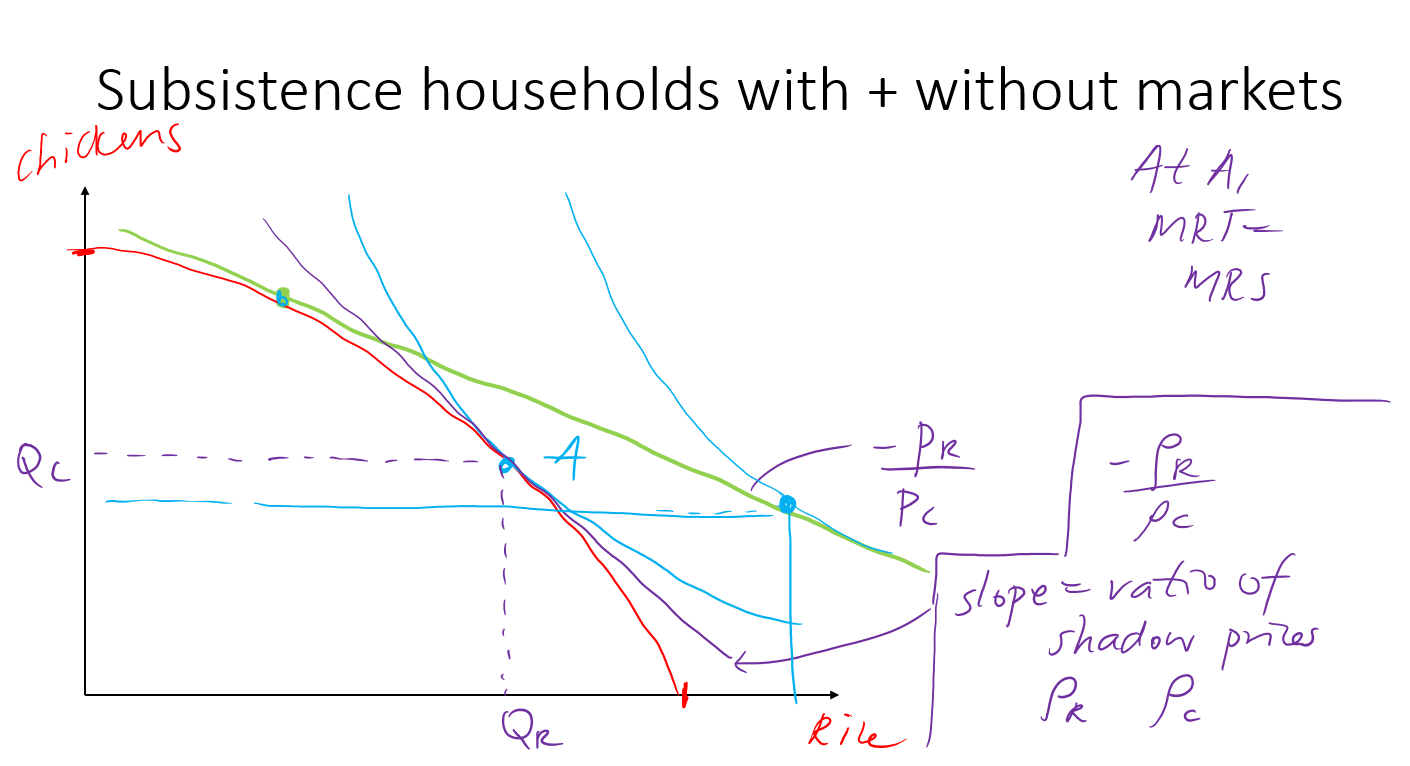 Subsistence households with + without markets
chickens
At A,
MRT =
MRS
b
A
Qc
- PR
Pc
- ρR
ρc
slope = ratio of
shadow prices
ρR ρc
QR
Rice